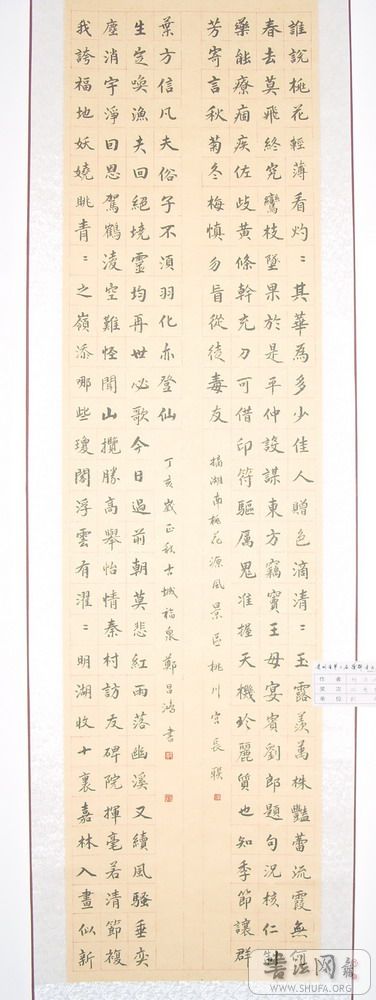 誰說桃花輕薄看灼〻其華為多少佳人贈色滴清〻玉露羨萬株艷蕾流霞無何
春去莫飛終究鸞枝墜果於是平仲設謀東方竊竇王母宴賓劉郎題句況核仁
藥能療痼疾佐歧黃條幹充刀可借印符驅厲鬼准握天機玲麗質也知季節讓群
芳寄言秋菊冬梅慎勿盲從徒毒友
摘湖南桃花源風景區桃川宮長聯
我誇福地妖嬈眺青〻之嶺添哪些瓊閣浮雲有濯〻明湖收十裏嘉林入畫似新
塵消宇淨回思駕鶴淩空難怪聞山攬勝高舉怡情秦村訪友碑院揮毫若清節複
生定喚漁夫回絕境靈均再世必歌今日過前朝莫悲紅雨落幽溪又續風騷垂奕
葉方信凡夫俗子不須羽化亦登仙
丁亥歲正秋古城福泉鄭昌鴻書
作者
单位
书法网
WWW.SHUFA.ORG